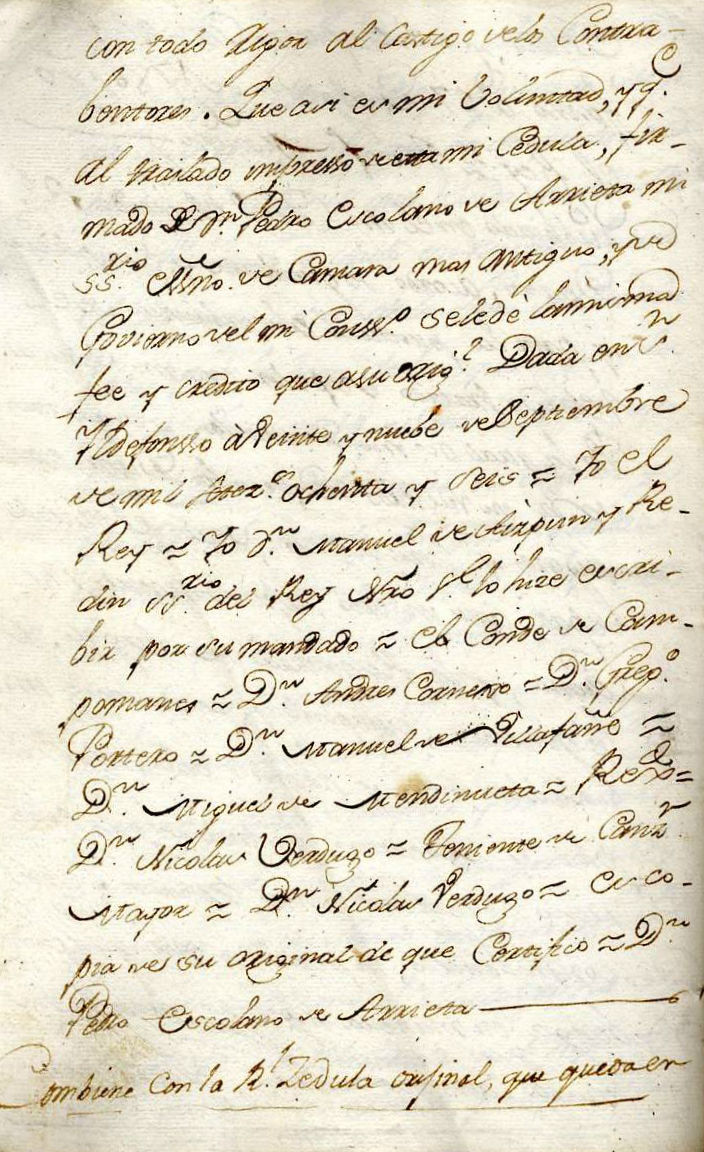 con todo rigor al Castigo de los Contra-
bentores. Que asi es mi Voluntad, y q.e
al traslado impresso de esta mi Cedula, fir-
mado de Dn. Pedro Escolano de Arrieta mi
SS.rio Essno. de Camara mas antiguo, y de
Govierno del mi Conss.o se le dé la misma
fee y credito que a su orig.l Dada en Sn.
Yldefonsso à Veinte y nuebe de Septiembre
de mil Setez.os ochenta y seis = Yo el
Rey = Yo Dn. Manuel de Aizpun y Re-
din SS.rio del Rey Nro Sr. lo hize escri-
bir por su mandado = el Conde de Cam-
pomanes = Dn. Andres Cornexo = Dn. Greg.o
Portero = Dn. Manuel de Villafañe =
Dn. Miguel de Mendinueta = Rexdo =
Dn. Nicolas Verdugo = Teniente de Canzr.
Mayor = Dn. Nicolas Verdugo = es co-
pia de su original de que Certifico = Dn.
Pedro Escolano de Arrieta
Combiene Con la Rl. Zedula orijinal, que queda en